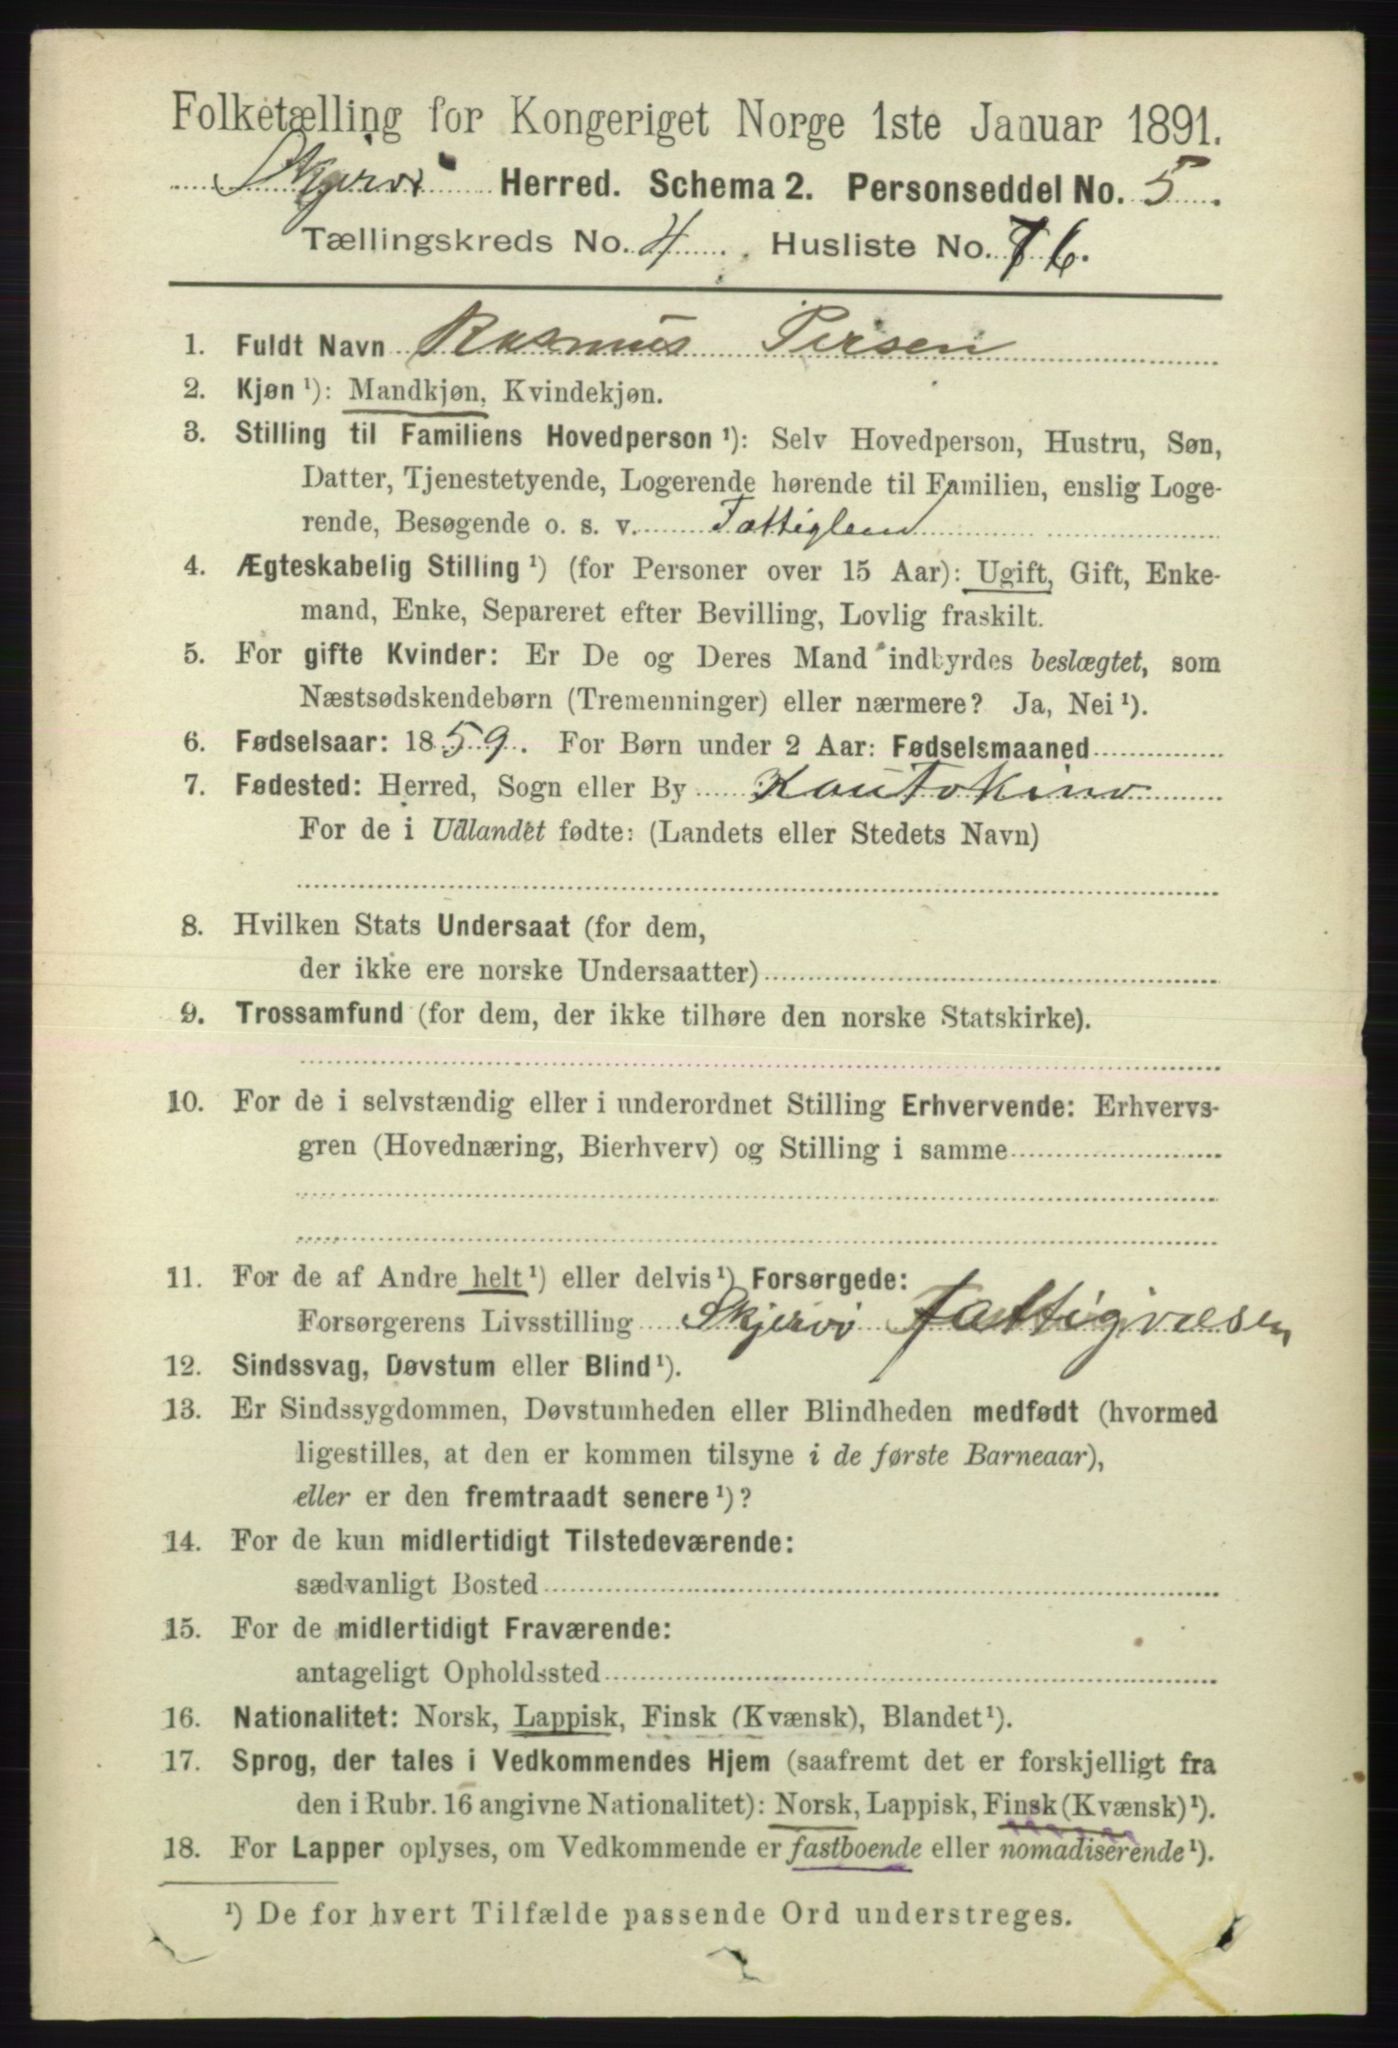 Folketælling for Kongeriget Norge 1ste Januar 1891.
Skjervø Herred. Schema 2. Personseddel No. 5.
Tællingskreds No. 4. Husliste No. 76.
1. Fuldt Navn Rasmus Persen
2. Kjøn¹): Mandkjøn, Kvindekjøn.
3. Stilling til Familiens Hovedperson¹): Selv Hovedperson, Hustru, Søn,
Datter, Tjenestetyende, Logerende hørende til Familien, enslig Loge-
rende, Besøgende o. s. v. Fattiglem
4. Ægteskabelig Stilling¹) (for Personer over 15 Aar): Ugift, Gift, Enke-
mand, Enke, Separeret efter Bevilling, Lovlig fraskilt.
5. For gifte Kvinder: Er De og Deres Mand indbyrdes beslægtet, som
Næstsødskendebørn (Tremenninger) eller nærmere? Ja, Nei¹).
6. Fødselsaar: 1859. For Børn under 2 Aar: Fødselsmaaned
7. Fødested: Herred, Sogn eller By Kautokino
For de i Udlandet fødte: (Landets eller Stedets Navn)
8. Hvilken Stats Undersaat (for dem,
der ikke ere norske Undersaatter)
9. Trossamfund (for dem, der ikke tilhøre den norske Statskirke).
10. For de i selvstændig eller i underordnet Stilling Erhvervende: Erhvervs-
gren (Hovednæring, Bierhverv) og Stilling i samme
11. For de af Andre helt¹) eller delvis¹) Forsørgede:
Forsørgerens Livsstilling Skjervø Fattigvæsen
12. Sindssvag, Døvstum eller Blind¹).
13. Er Sindssygdommen, Døvstumheden eller Blindheden medfødt (hvormed
ligestilles, at den er kommen tilsyne i de første Barneaar),
eller er den fremtraadt senere¹)?
14. For de kun midlertidigt Tilstedeværende:
sædvanligt Bosted
15. For de midlertidigt Fraværende:
antageligt Opholdssted
16. Nationalitet: Norsk, Lappisk, Finsk (Kvænsk), Blandet¹).
17. Sprog, der tales i Vedkommendes Hjem (saafremt det er forskjelligt fra
den i Rubr. 16 angivne Nationalitet): Norsk, Lappisk, Finsk (Kvænsk)¹).
18. For Lapper oplyses, om Vedkommende er fastboende eller nomadiserende¹).
¹) De for hvert Tilfælde passende Ord understreges.